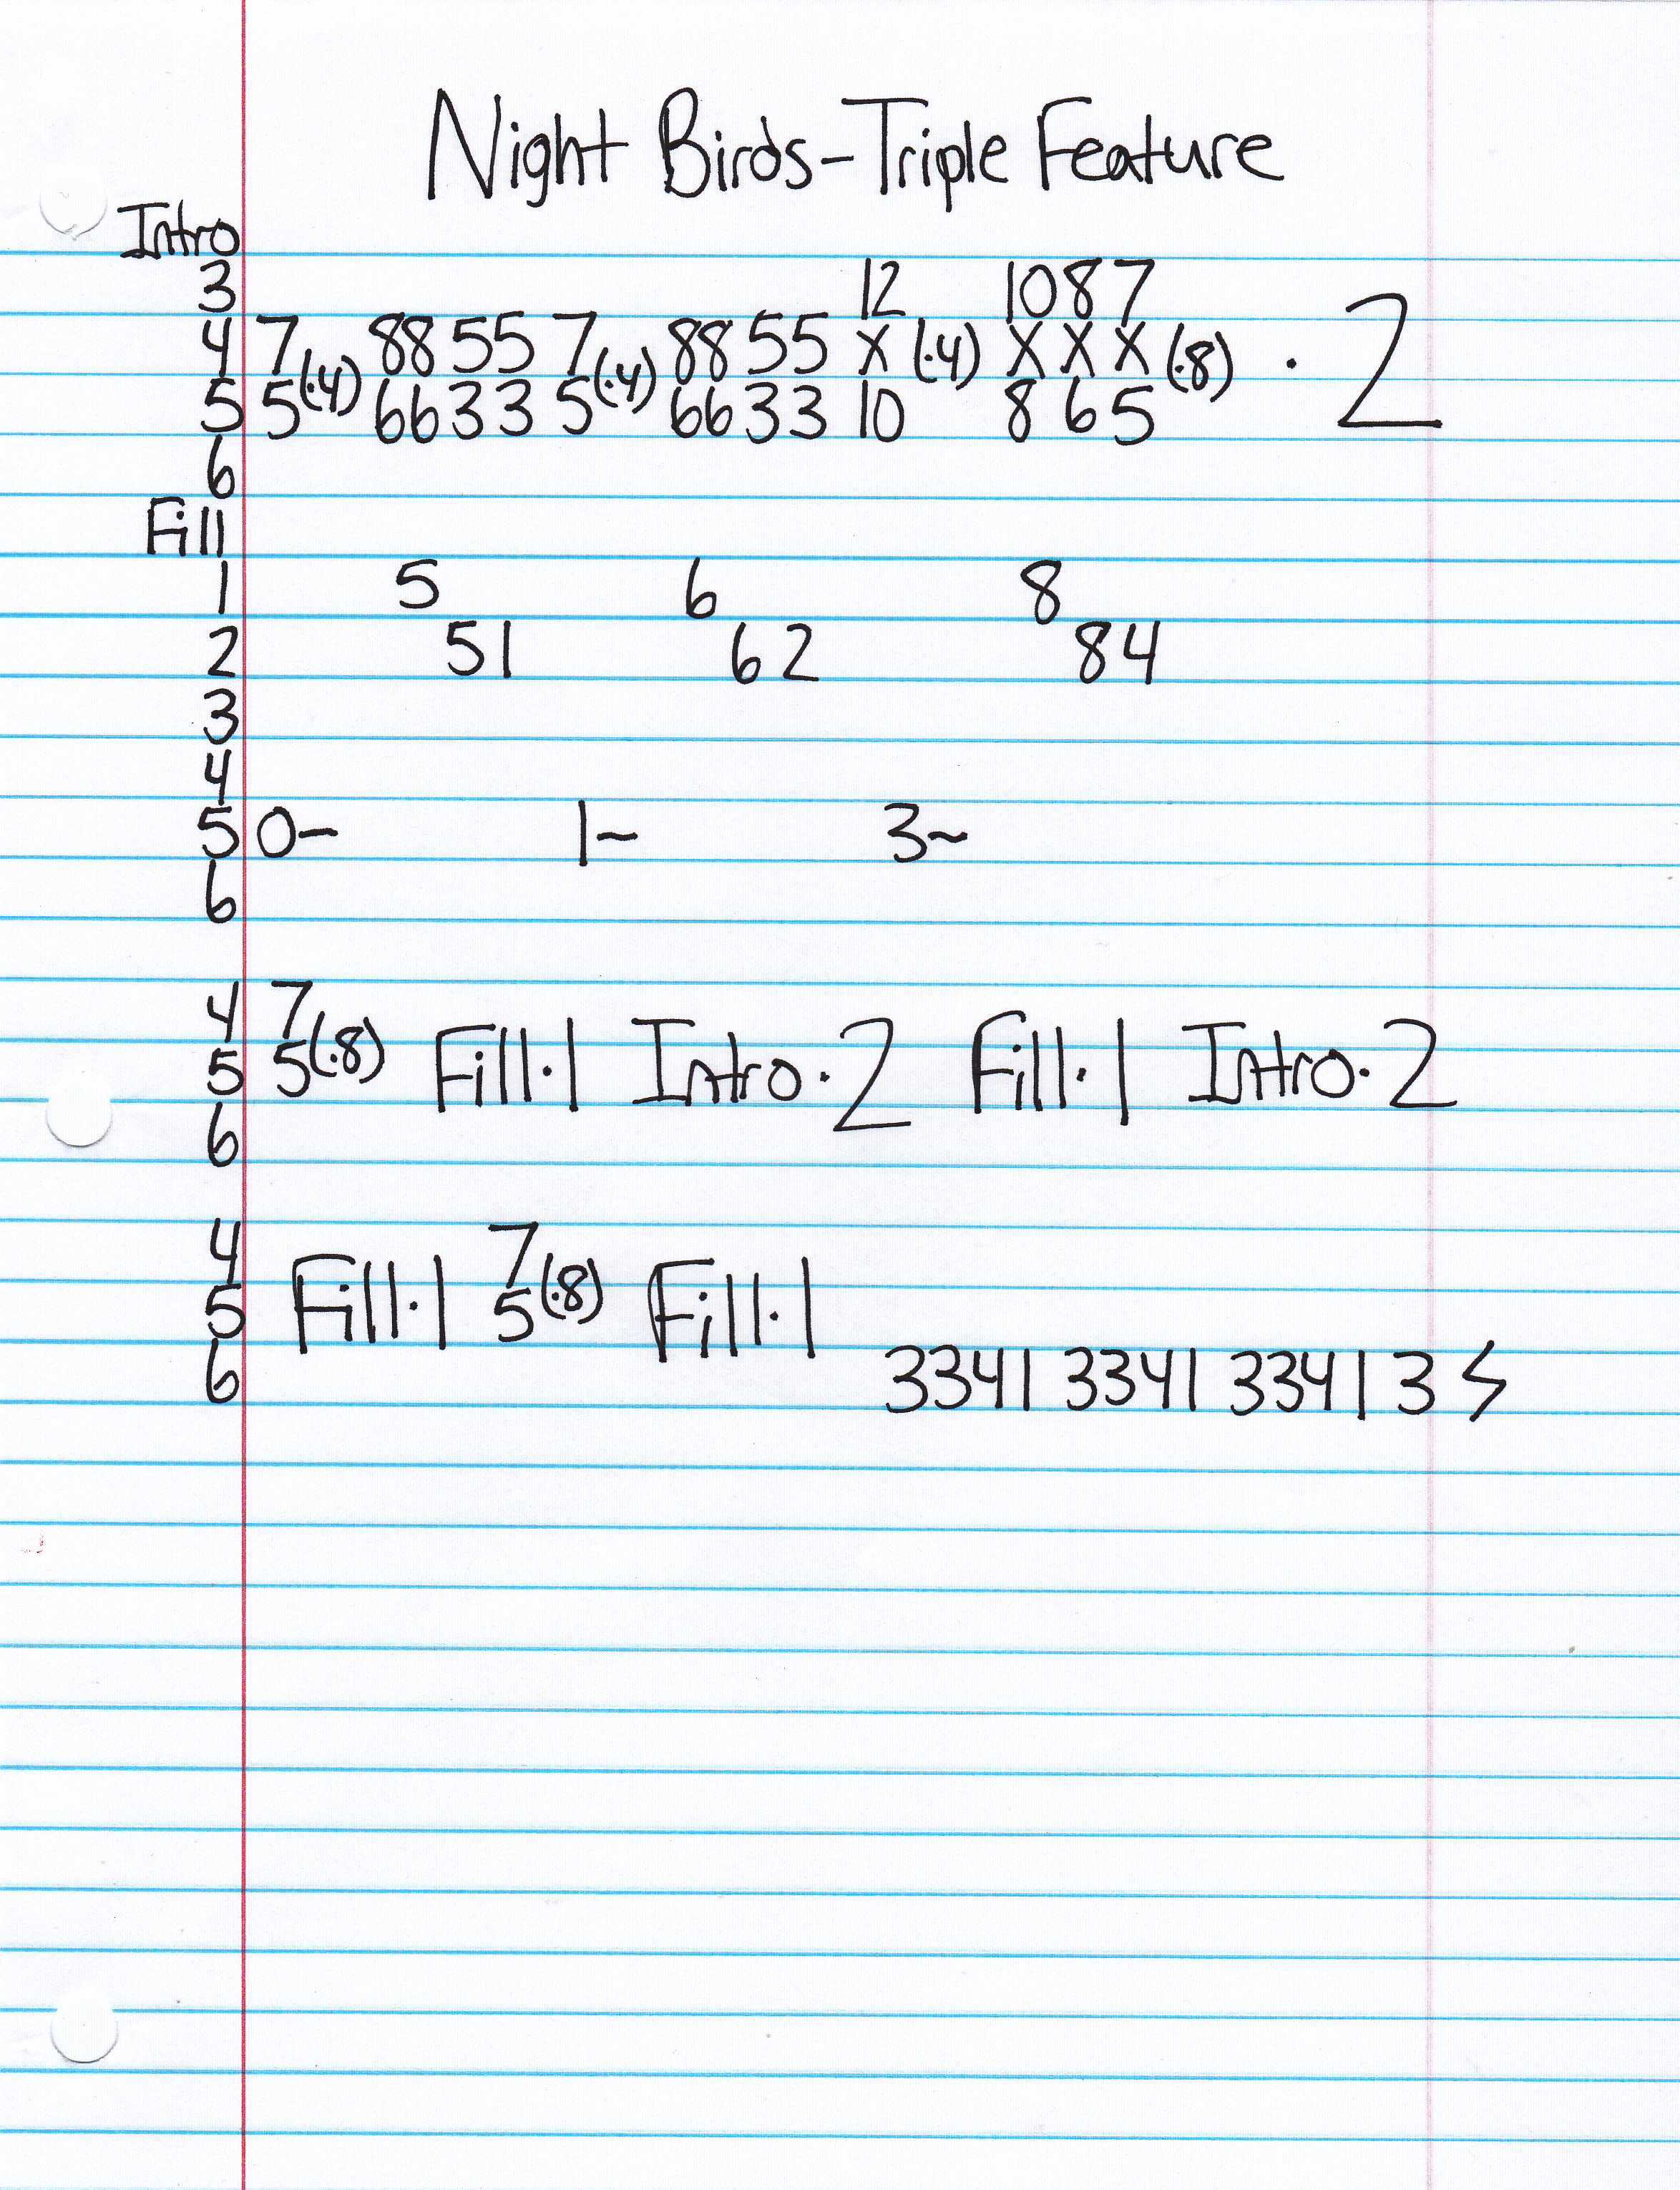 Night Birds-Triple Feature
Intro
3 12 10 8 7
4 7 (·4) 88 55 7 (·4) 88 55 X (·4) X X X (·8) · 2
5 5 66 33 5 66 33 10 8 6 5
6
Fill
1 5 6 8
2 51 62 84
3
4
5 0- 1~ 3~
6
4 7
5 5(·8) Fill·1 Intro·2 Fill·1 Intro·2
6
4 7
5 Fill·1 5(·8) Fill·1
6 3341 3341 3341 3 ϟ